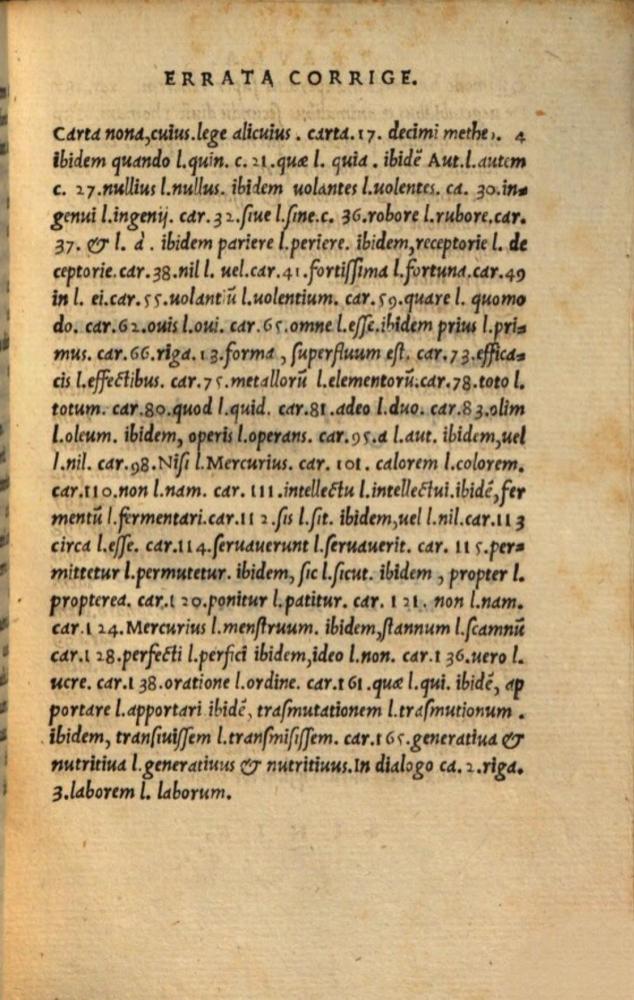 ERRATA CORRIGE.
Carta nona,cuius.lege alicuius . carta.17. decimi methe:. 4
ibidem quando l.quin. c. 21.quæ l. quia . ibidē Aut.l.autem
c. 27.nullius l.nullus. ibidem uolantes l.uolentes. ca. 30.in-
genui l.ingenij. car.32.ſiue l.ſine.c. 36.robore l.rubore.car.
37. & l. à . ibidem pariere l.periere. ibidem,receptorie l. de
ceptorie.car.38.nil l. uel.car.41.fortiſſima l.fortuna.car.49
in l. ei.car.55.uolantiū l.uolentium. car.59.quare l. quomo
do. car.62.ouis l.oui. car.65.omne l.eſſe.ibidem prius l.pri-
mus. car.66.riga.13.forma , ſuperfluum eſt. car.73.effica-
cis l.effectibus. car.75.metallorū l.elementorū.car.78.toto l.
totum. car.80.quod l.quid. car.81.adeo l.duo. car.83.olim
l.oleum. ibidem, operis l.operans. car.95.a l.aut. ibidem,uel
l.nil. car.98.Niſi l.Mercurius. car. 101. calorem l.colorem.
car.110.non l.nam. car. 111.intellectu l.intellectui.ibidē,fer
mentū l.fermentari.car.112.ſis l.ſit. ibidem,uel l.nil.car.113
circa l.eſſe. car.114.ſeruauerunt l.ſeruauerit. car. 115.per-
mittetur l.permutetur. ibidem, ſic l.ſicut. ibidem , propter l.
propterea. car.120.ponitur l.patitur. car. 121. non l.nam.
car.124.Mercurius l.menſtruum. ibidem,ſtannum l.ſcamnū
car.128.perfecti l.perfici ibidem,ideo l.non. car.136.uero l.
uere. car.138.oratione l.ordine. car.161.quæ l.qui. ibidē, ap
portare l.apportari ibidē, traſmutationem l.traſmutionum .
ibidem, tranſiuiſſem l.tranſmiſiſſem. car.165.generatiua &
nutritiua l.generatiuus & nutritiuus.In dialogo ca.2.riga.
3.laborem l. laborum.